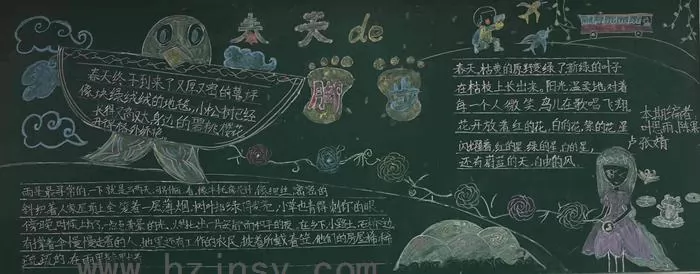 春天de
脚步
春天终于到来了又厚又密的草坪
像块绿绒绒的地毯，小松树已经
长得又高又大身边的碧桃樱花
春天，枯黄的原野变绿了新绿的叶子
在枯枝上长出来。阳光温柔地对着
每一个人微笑，鸟儿在歌唱飞翔。
花开放着红的花，白的花，紫的花，星
闪耀着红的星绿的星白的星，
还有蔚蓝的天，自由的风
本期抢者：
叶思雨、陈果
卢张婧
雨是最寻常的，一下就是三两天，别恼，看，像牛毛像花针，像细丝，密密的
斜织着，人家屋顶上全笼着一层薄烟，树叶却绿得发亮，小草也青得刺你的眼。
傍晚时候，上灯了，一点点黄晕的光，
在乡下，小路上，石桥边
有撑着伞慢慢走着的人，地里还有工作的农民，披着所戴着笠，他们的房屋稀稀
疏疏的在雨里
www.hzjnsy.com